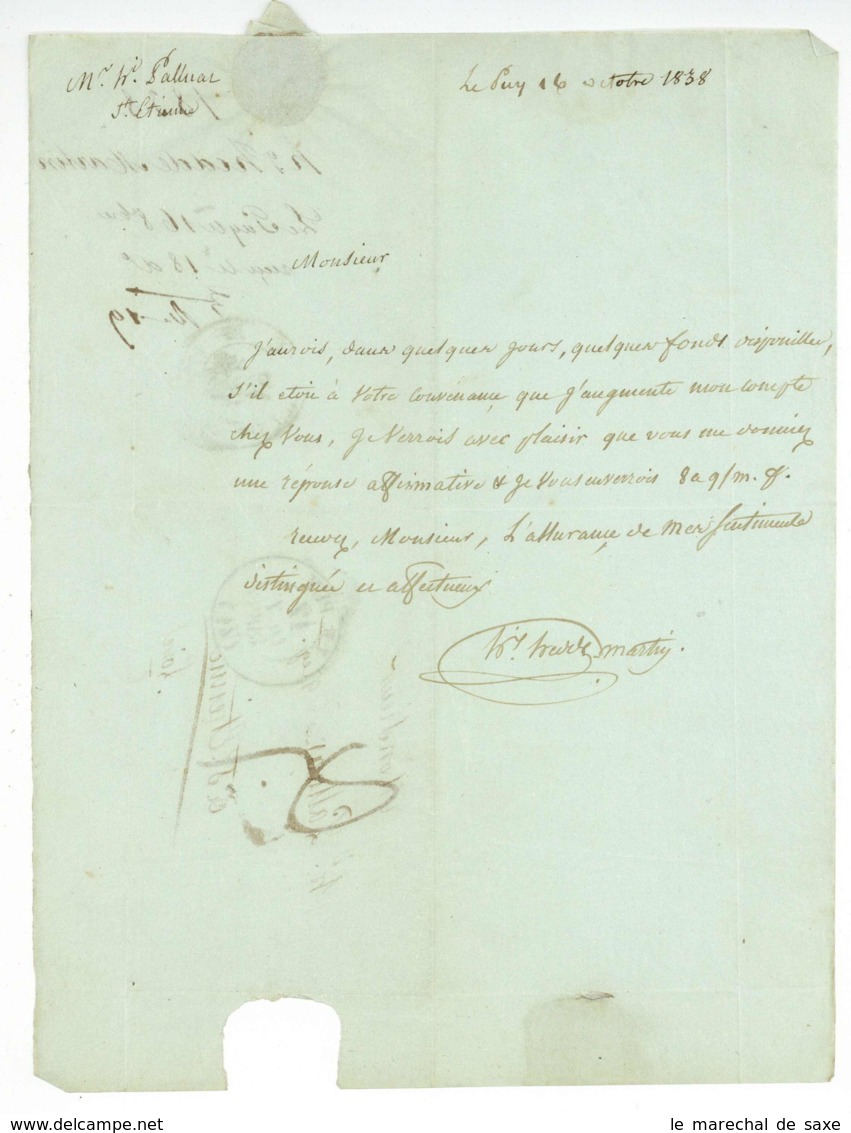 Mr. Palluat
St. Etienne
Le Puy 16 octobre 1838
Monsieur
J'aurois, dans quelques jours, quelques fonds disponibles,
S'il etoit à Votre Convenance que J'augmente mon compte
chez Vous, Je Verrois avec plaisir que vous me donniez
une réponse affirmative & Je Vous enverrois 8 a 9/m. f.
recevez, Monsieur, L'assurance de mes Sentiments
distingués et affectueux
martin.
le marechal de saxe